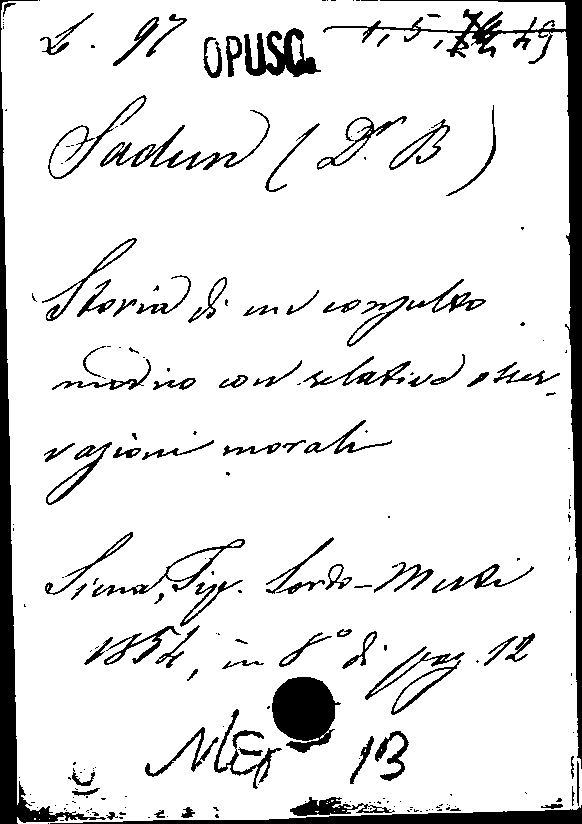 L. 97 OPUSC. 1, 5, 49
Sadun (Dr. B)
Storia di un consulto
medico con relative osser-
vazioni morali
Siena, Tip. Sordo-Muti
1854, in 8° di pag. 12
MEr 13